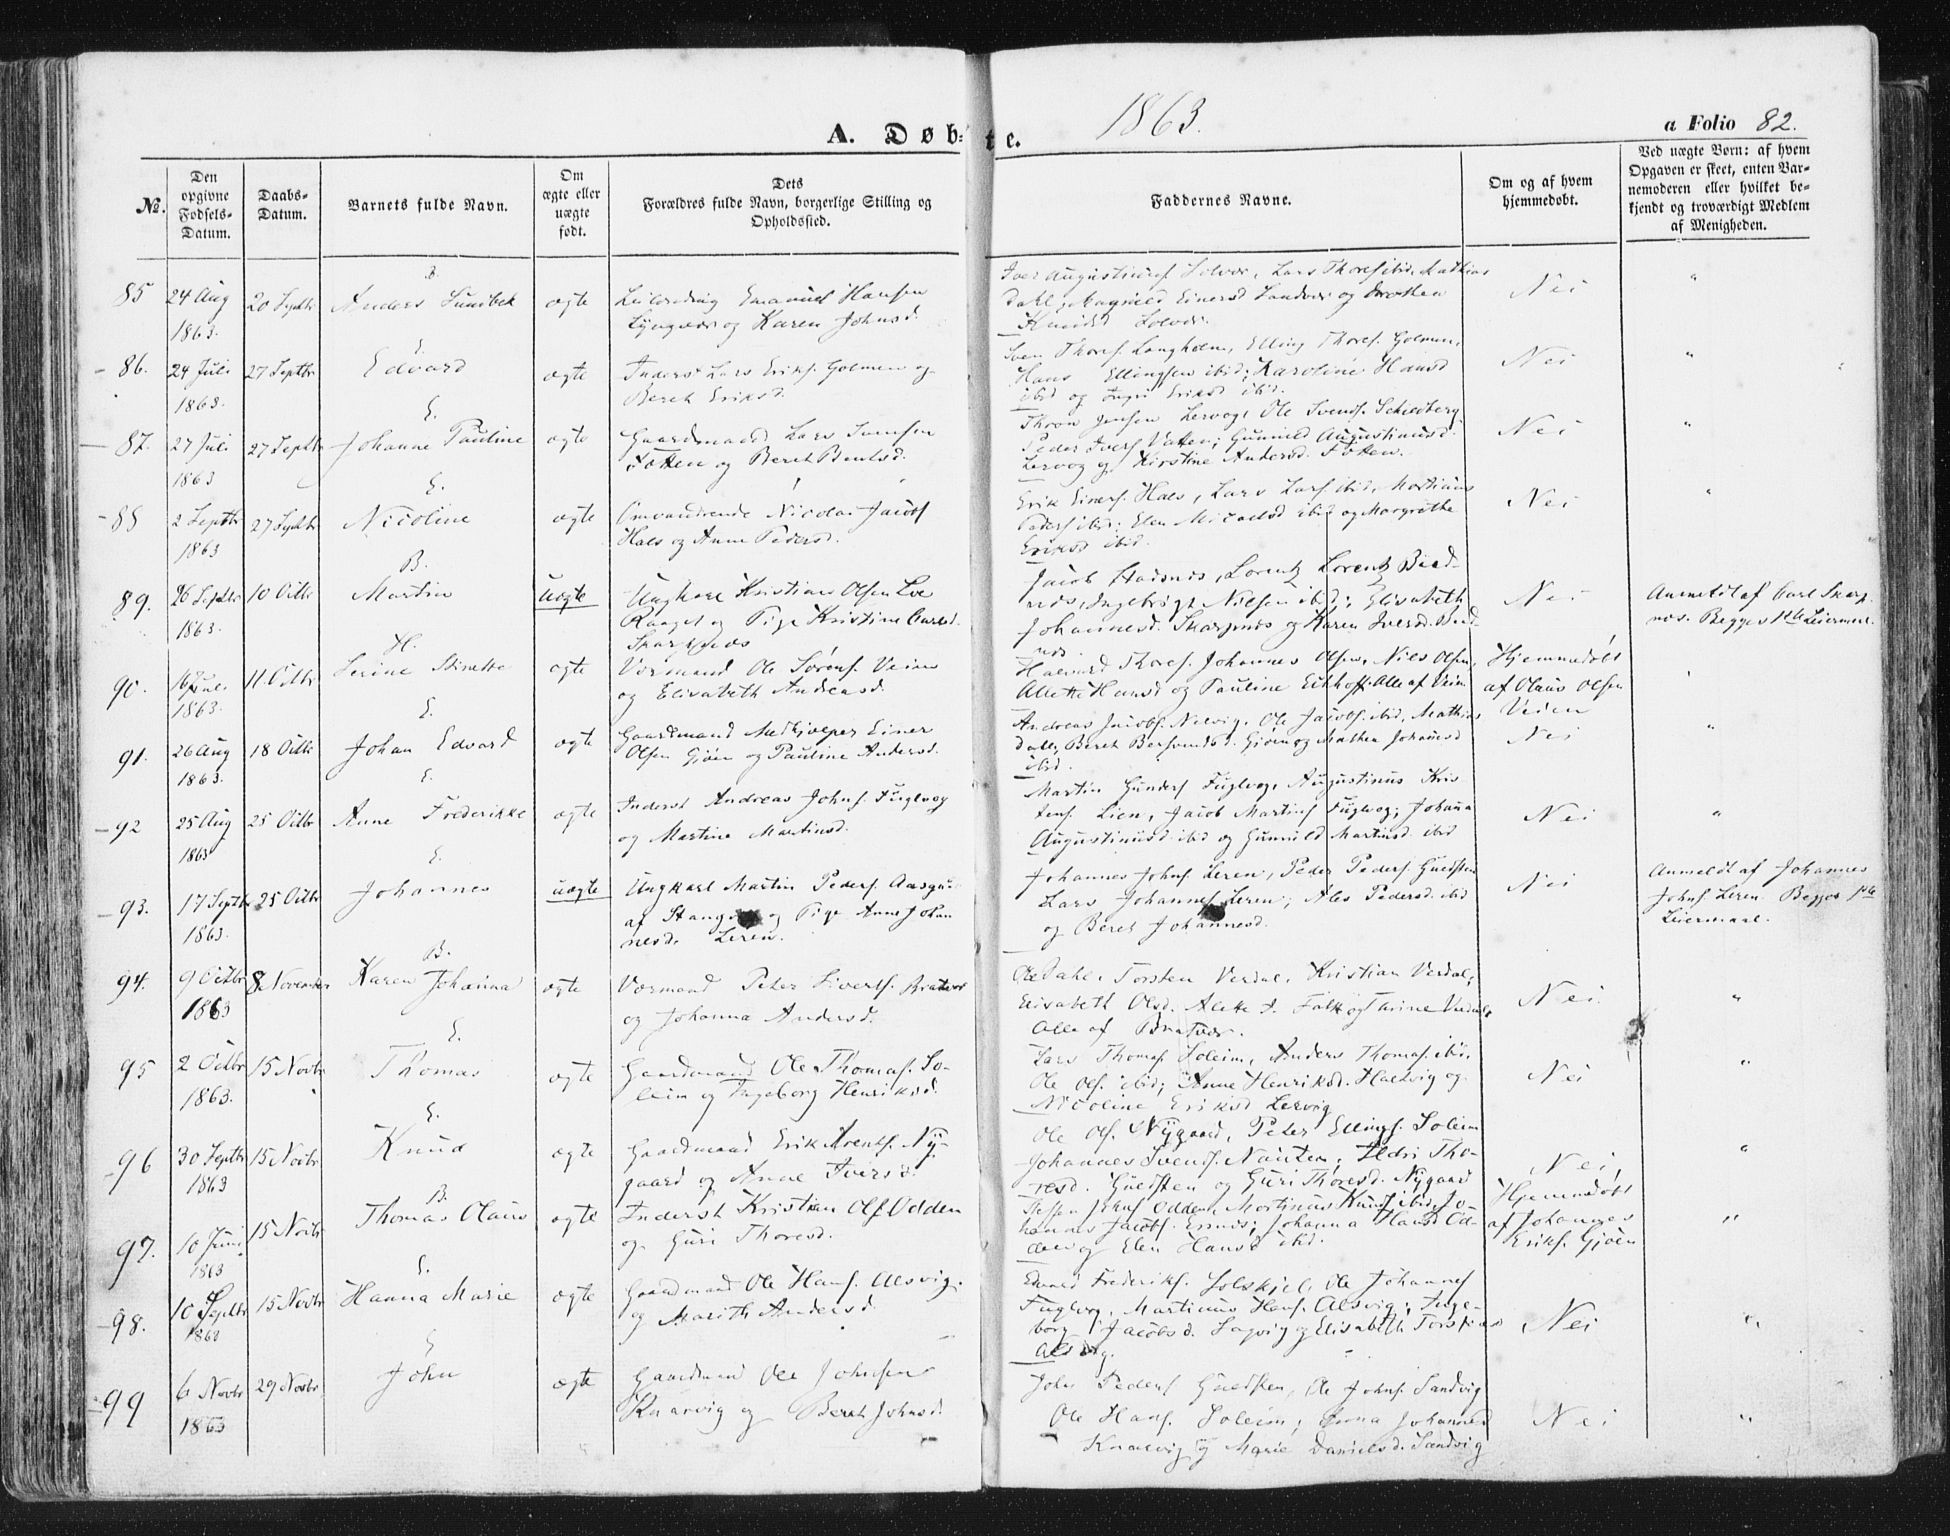 1863.
A. Døbte.
a Folio 82.
No.
Den opgivne Fødsels-Datum.
Daabs-Datum.
Barnets fulde Navn.
Om ægte eller uægte født.
Dets Forældres fulde Navn, borgerlige Stilling og Opholdssted.
Faddernes Navne.
Om og af hvem hjemmedøbt.
Ved uægte Børn: af hvem Opgaven er skeet, enten Barnemoderen eller hvilket bekjendt og troværdigt Medlem af Menigheden.
B.
85 24 Aug 1863. 20 Septbr Anders Sundbek ægte
Emanuel Hansen
og Karen Johnsd.
Iver Augustinusf. Solvær, Lars Thoresf ibid, Mathias
Dahl, Einersd og
Knudsd Solvær.
Nei "
E
86. 24 Juli 1863. 27 Septbr Edvard ægte
Inderst Lars Eriks. Golmen og
Bereth Eriksd.
Sven Thoresf. Langholm, Elling Thoresf. Golmen,
Hans Ellingsen ibid; Karoline Hansd
ibid og Ingri Eriksd ibid.
Nei "
E.
87. 27 Juli 1863 27 Septbr Johanne Pauline ægte
Gaardmand Lars Svensen
Fætten og Bereth Bentsd.
Thron Jensen Lervog, Ole Svends.
Peder Iversf Vatten; Gunild Augustinusd.
Lervog og Kirstine Andersd. Fætten.
Nei "
E.
88 2 Septbr 1863 27 Septbr Nicoline ægte
Omvandrende Nicolai Jacobf
Hals og Anne Pedersd.
Erik Einersf. Hals, Lars Larsf. ibid, Mortinus
Pedersf ibid; Elen Micaelsd ibid og Margrethe
Eriksd ibid.
Nei "
B.
89. 26 Septbr 1863. 10 Octbr Martin uægte
Ungkarl Kristian Olsen Loe
og Pige Kristine Carlsd.
Skarpnæs
Jacob Hadsnæs, Lorentz Lorentz Bied-
næs, Ingebrigt Nilsen ibid; Elisabeth
Johannesd. Skarpnæs og Karen Iversd. Bied-
næs
Nei
Anmeldt af Carl Skarp-
næs. Begges 1ste Leiermaal.
H.
90. 16 Juli 1863. 11 Octbr Serine Stinette ægte
Vormand Ole Sørensf. Veien
og Elisabeth Andreasd.
Halvard Thoresf. Johannes Olsen, Nils Olsen,
Alette Hansd og Pauline Eckhoff. Alle af Veien
Hjemmedøbt
af Olaus Olsen
Veien
"
E.
91. 26 Aug 1863. 18 Octbr Johan Edvard ægte
Gaardmand Medhjelper Einer
Olsen Gjøen og Pauline Andersd.
Andreas Jacobs. Nelvig, Ole Jacobs. ibid, Mathias
Dahl, Bereth Gjøen og Mathea Johansd
ibid.
Nei "
E.
92 25 Aug 1863 25 Octbr Anne Frederikke ægte
Inderst Andreas Johnsf. Fuglvog
og Martine Martinsd.
Martin Gundersf Fuglvog, Augustinus Kris-
tensf. Lien, Jacob Martinsf Fuglvog; Johana
Augustinusd ibid og Gunild Martinsd ibid
Nei "
E.
93. 17 Septbr 1863. 25 Octbr Johannes uægte
Ungkarl Martin Pedersf.
af og Pige Anne Johan-
nesd. Leren.
Johannes Johnsf Leren, Peder Pedersf. Guldsten
Lars Johannesf Leren; Ales Pedersd ibid
og Bereth Johannesd.
Nei
Anmeldt af Johannes
Johnsf. Leren. Begges 1ste
Leiermaal.
B.
94. 9 Octbr 1863 8 November Karen Johanna ægte
Vormand Peter Sivertsf. Bratvær
og Johanna Andersd.
Ole Dahl, Torsten Verdal, Kristian Verdal,
Elisabeth Olsd. Alette S. Falk og Karine Verdal,
Alle af Bratvær.
Nei "
E.
95 2 Octbr 1863. 15 Novbr Thomas ægte
Gaardmand Ole Thomasf. So-
leim og Ingeborg Henriksd.
Lars Thomasf Soleim, Anders Thomasf. ibid,
Ole Olsf. ibid; Anne Henriksd. Haltvig og
Nicoline Eriksd Lervig
Nei "
E.
96 30 Septbr 1863 15 Novbr Knud ægte
Gaardmand Erik Arentsf. Ny-
gaard og Anne Iversd.
Ole Olsf. Nygaard, Peter Ellingsf. Soleim
Johannes Svendsf. Nausten; Ildri Tho-
resd. Guldsten og Guri Thoresd. Nygaard
Nei, "
B.
97. 10 Juni 1863 15 Novbr Thomas Olaus ægte
Inderst Kristian Olsf Odden
og Guri Thoresd.
Steffen Johnsf Odden, Mortinus Knudsf ibid, Jo-
hannes Jacobsf. Ersnæs; Johanna Hansd Od-
den og Elen Hansd ibid.
Hjemmedøbt
af Johannes
Eriksf. Gjøen
"
E.
98. 10 Septbr 1863 15 Novbr Hanna Marie ægte
Gaardmand Ole Hansf. Alsvig
og Marith Andersd
Edvard Frederiksf. Solskjel, Ole Johannesf
Fuglvog, Martinus Hansf. Alsvig; Inge-
borg Jacobsd. Lagvig og Elisabeth
Alsvig.
Nei "
E
99 6 Novbr 1863 29 Novbr John ægte
Gaardmand Ole Johnsen
Knarvig og Bereth Johnsd.
John Pedersf Guldsten, Ole Johnsf. Sandvig
Ole Hansf. Soleim; Anna Johannesd
Knarvig og Marie Danielsd. Sandvig
Nei "